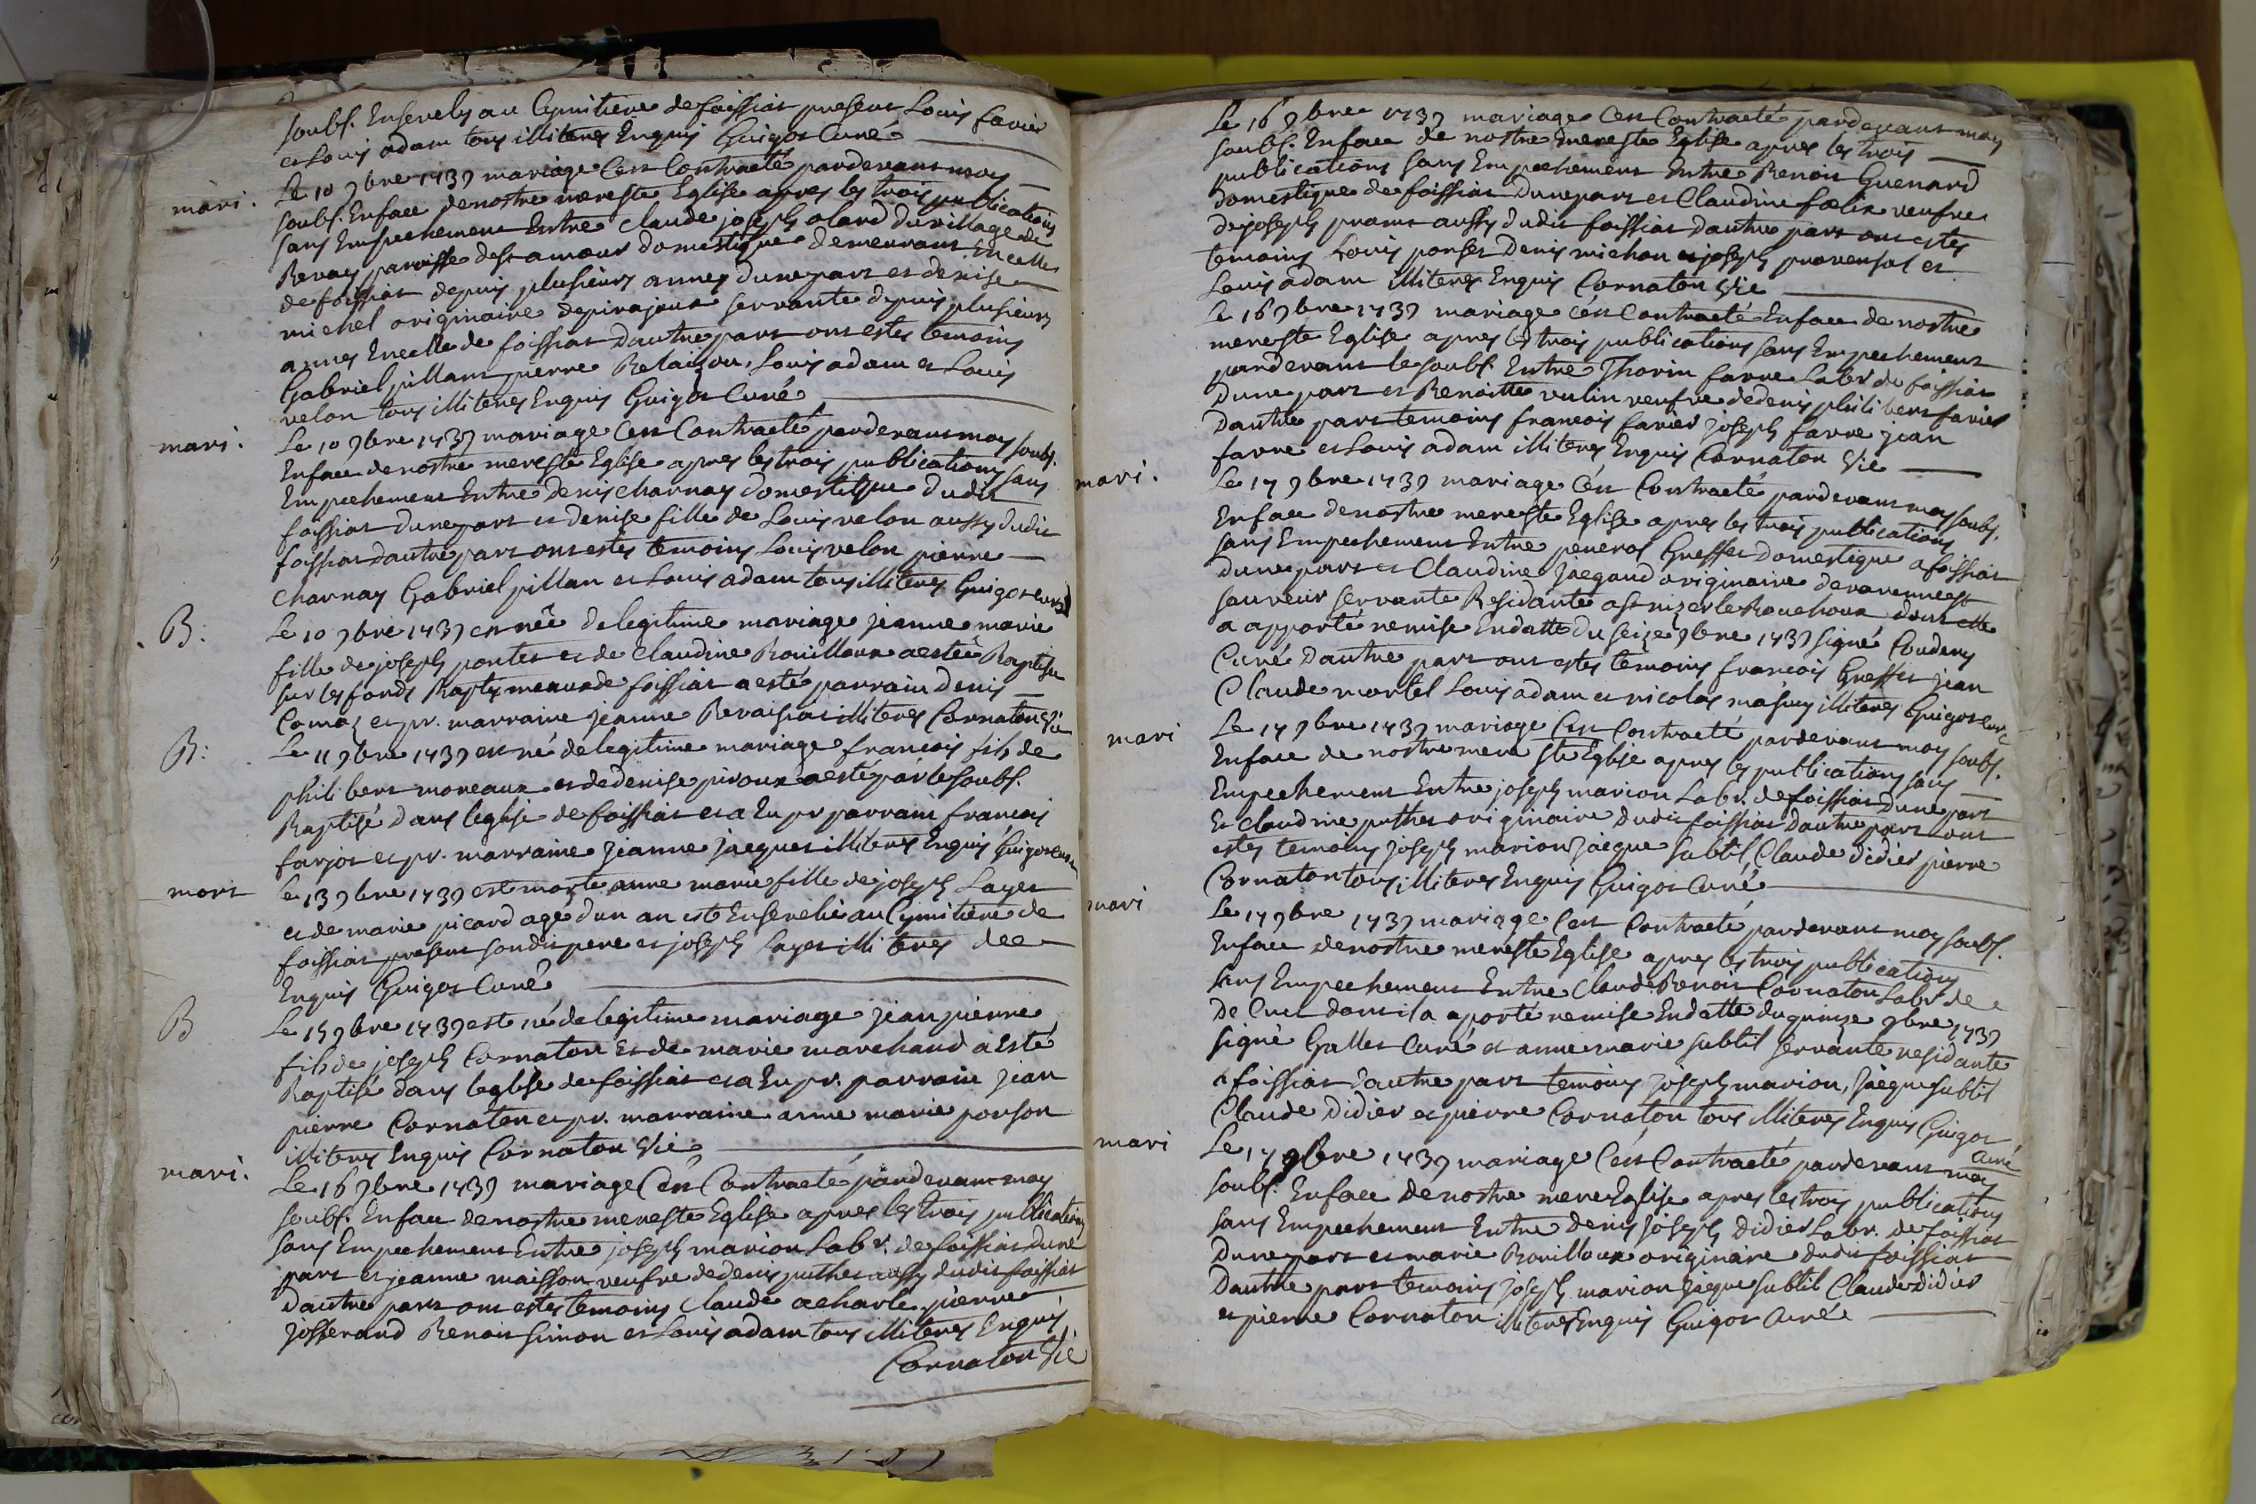 soubs. Ensevely au Cymitiere de foissiat present Louis favier
et Louis adam tous illiteres Enquis Guigot Curé
mari. Le 10 9bre 1739 mariage C'est Contracté pardevant moy
soubs. Enface de nostre mere ste Eglise apres les trois publications
sans Empechement Entre Claude joseph alard du village de
Revay paroisse de st amour domestique demeurant En celle
de foissiat depuis plusieurs annes dune part et denise
michel originaire de pirajoux servante depuis plusieurs
annes Encelle de foissiat Dautre part ont estes temoins
Gabriel pillant pierre Relaizon, Louis adam et Louis
velon tous illiteres Enquis Guigot Curé
mari. Le 10 9bre 1739 mariage C'est Contracté pardevant moy soubs.
Enface de nostre mere ste Eglise apres les trois publications sans
Empechement Entre denis charnay domestique dudit
foissiat dune part et denise fille de Louis velon aussy dudit
foissiat dautre part ont estes temoins Louis velon pierre
charnay Gabriel pillan et Louis adam tous illiteres Guigot curé
B: Le 10 9bre 1739 est née de legitime mariage jeanne marie
fille de joseph pontet et de Claudine Rouilloux a estée Baptisée
sur les fonds Baptismeaux de foissiat a esté parrain denis
Comaz et pr. marraine jeanne Revaisiat illiteres Cornaton Vic
B: Le 11 9bre 1739 est né de legitime mariage francois fils de
philibert moreaux et de denise piroux a esté par le soubs.
Baptisé dans leglise de foissiat et a Eu pr parrain francois
farjot et pr. marraine jeanne jacquet illiteres Enquis Guigot curé
mort Le 13 9bre 1739 est morte anne marie fille de joseph Layet
et de marie picard age dun an est Ensevelie au Cymitiere de
foissiat present sondit pere et joseph Layet illiteres de ce
Enquis Guigot Curé
B Le 15 9bre 1739 est né de legitime mariage jean pierre
fils de joseph Cornaton Et de marie marchand a Esté
Baptisé dans leglise de foissiat et a Eu pr. parrain jean
pierre Cornaton et pr. marraine anne marie ponson
illiteres Enquis Cornaton Vic
mari. Le 16 9bre 1739 mariage C'est Contracté pardevant moy
soubs. Enface de nostre mere ste Eglise apres les trois publications
sans Empechement Entre joseph marion Labr. de foissiat dune
part et jeanne maisson veufve de denis puthet aussy dudit foissiat
Dautre part ont estes temoins Claude acharle. pierre
josserand Benoit simon et Louis adam tous illiteres Enquis
Cornaton Vic
Le 16 9bre 1739 mariage C'est Contracté pardevant moy
soubs. Enface de nostre mere ste Eglise apres les trois
publications sans Empechement Entre Benoit Guenard
Domestique de foissiat Dune part et Claudine foelix veufve
de joseph prams aussy dudit foissiat dautre part ont estes
temoins Louis ponset Denis michon et joseph provensal et
Louis adam illiteres Enquis Cornaton Vic
Le 16 9bre 1739 mariage c'est Contracté Enface de nostre
mere ste Eglise apres les trois publications sans Empechement
pardevant le soubs. Entre Thorin favre Labr de foissiat
Dune part et Benoitte vulin veufve de denis philibert favier
Dautre part temoins francois favier joseph favre jean
favre et Louis adam illiteres Enquis Cornaton Vic
mari. Le 17 9bre 1739 mariage C'est Contracté pardevant moy soubs.
Enface de nostre mere ste Eglise apres les trois publications
sans Empechement Entre peneros Greffet Domestique a foissiat
Dune part et Claudine jacgaud originaire de varennes st
sauveur servante Residante a st nizier le Bouchoux dont elle
a apporté remise Endatte du seize 9bre 1739 signé Coudery
Curé Dautre part ont estes temoins francois Greffet jean
Claude mortel Louis adam et nicolas masuy illiteres Guigot curé
mari Le 17 9bre 1739 mariage C'est Contracté pardevant moy soubs.
Enface de nostre mere ste Eglise apres les publications sans
Empechement Entre joseph marion Labr. de foissiat Dune part
Et claudine puthet originaire dudit foissiat Dautre part ont
estes temoins joseph marion jacque subtil Claude didier pierre
Cornaton tous illiteres Enquis Guigot Curé
mari Le 17 9bre 1739 mariage C'est Contracté pardevant moy soubs.
Enface de nostre mere ste Eglise apres les trois publications
sans Empechement Entre Claude Benoit Cornaton Labr de
De Cuet dont il a aporté remise Endatte du quinze 9bre 1739
signé Gallet Curé et anne marie subtil servante residante
a foissiat dautre part temoins joseph marion, jacque subtil
Claude didier et pierre Cornaton tous illiteres Enquis Guigot
Curé
mari Le 17 9bre 1739 mariage C'est Contracté pardevant moy
soubs. Enface de nostre mere Eglise apres les trois publications
sans Empechement Entre denis joseph Didier Labr. de foissiat
Dune part et marie Rouilloux originaire dudit foissiat
Dautre part temoins joseph marion jacque subtil Claude didier
et pierre Cornaton illiteres Enquis Guigot Curé